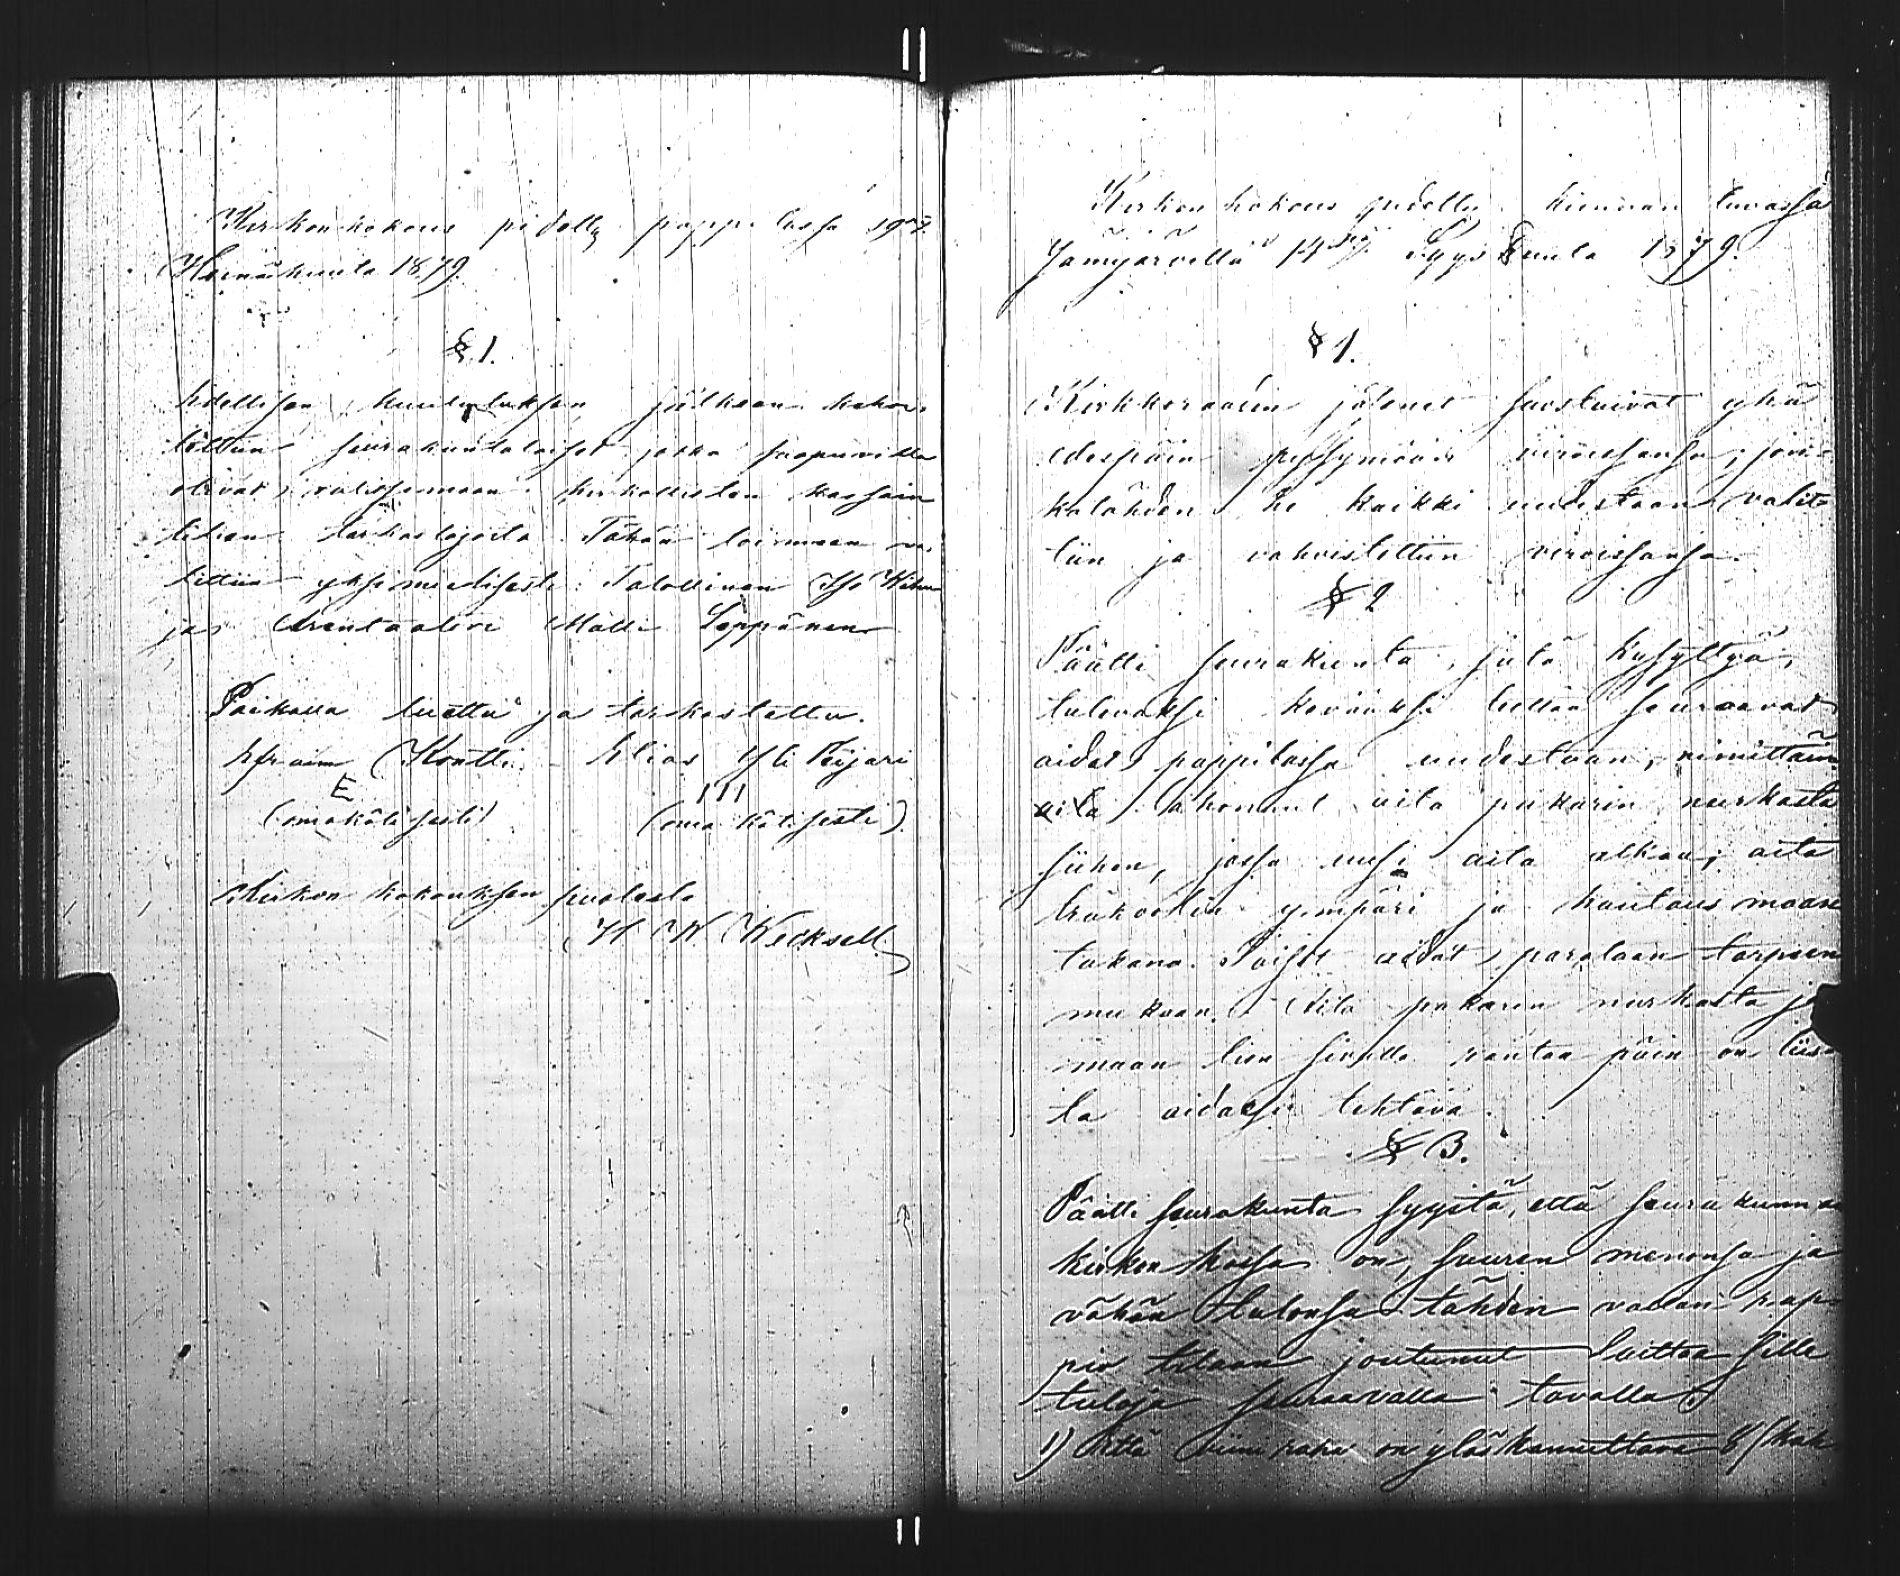 Kirkonkokous pidetty pappilassa 19
Heinäkuuta 1879.
§ 1.
kuulutuksen jälkeen kehoi-
tettiin seurakuntalaiset jotka saapuvilla
olivat, valitsemaan kirkollisten kassain
tilien tarkastajoita. Tähän toimeen va-
littiin yksimielisesti: Talollinen
ja Arentaatori Matti Seppänen
Paikalla luettu ja tarkastettu.
Efraim Kontti Elias Yli Peijari
E III
(omakätisesti) (oma kätisesti).
Kirkon kokouksen puolesta
H W Wecksell.
Kirkon kokous pidetty kiinnan tuvassa
Jämijärvellä 14 Syys kuuta 1879.
§ 1.
Kirkkoraadin jäsenet suostuivat yhä
edespäin pysymään viroissansa; jon-
katähden he kaikki uudestaan valit-
tiin ja vahvistettiin viroissansa.
§ 2
Päätti seurakunta, sitä kysyttyä,
tulevaksi kevääksi teettää seuraavat
aidat pappilassa uudestaan, nimittäin
aita pakarin nurkasta
siihen, jossa uusi aita alkaa; aita
ympäri ja hautausmaan
takana. Toiset aidat parataan tarpeen
mukaan. Aita pakarin nurkasta ja
maan tien sivulla rantaa päin on
ta aidaksi tehtävä.
§ 3.
Päätti seurakunta syystä, että seurakunnan
kirkon kassa on, suuren menonsa ja
vähän tulonsa tähden vallan rap-
pio tilaan joutunut Laittaa sille
tuloja seuraavalla tavalla
1) Että viini raha on ylöskannettava 8 (kah